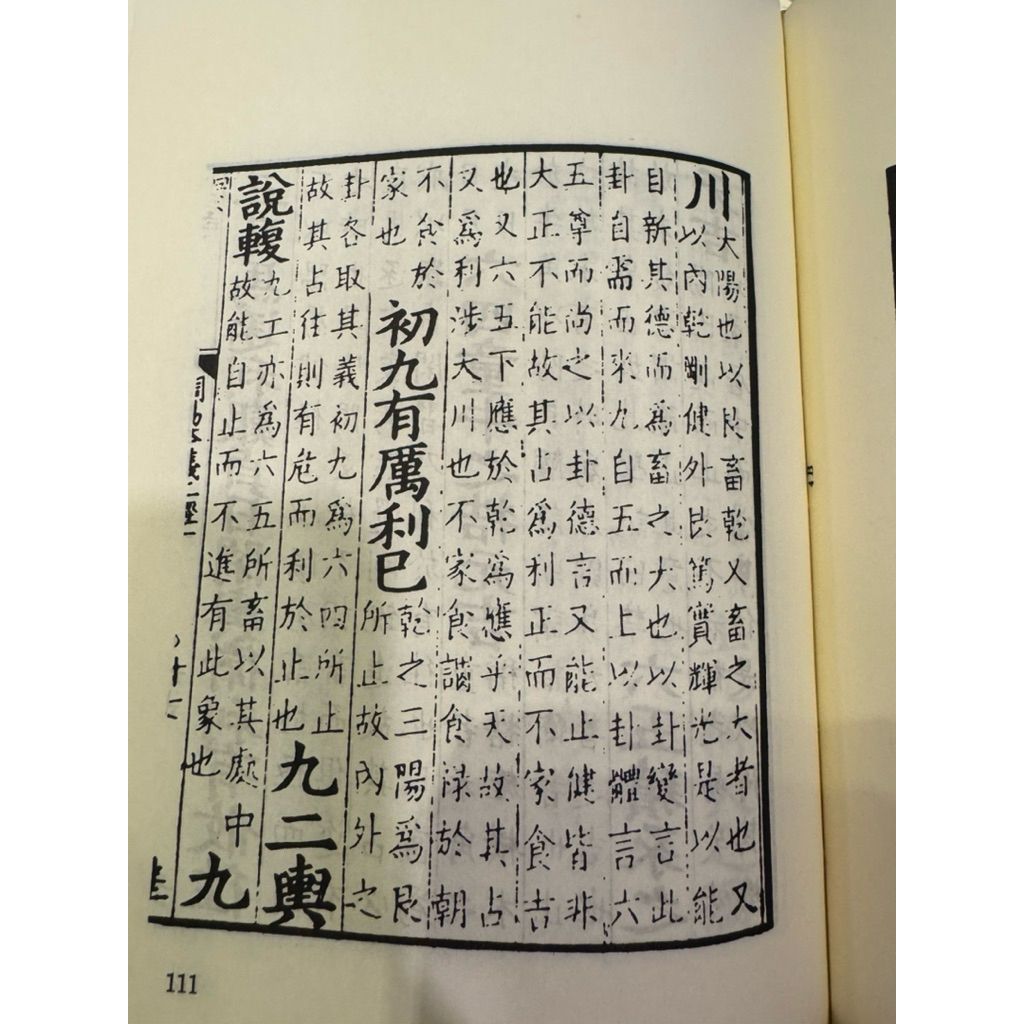 川
大陽也以艮畜乾又畜之大者也又
以內乾剛健外艮篤實輝光是以能
自新其德而爲畜之大也以卦變言此
卦自需而來九自五而上以卦體言六
五尊而尚之以卦德言又能止健皆非
大正不能故其占爲利正而不家食吉
也又六五下應於乾爲應乎天故其占
又爲利涉大川也不家食謂食祿於朝
不食於
家也
初九有厲利已
乾之三陽爲艮
所止故內外之
卦各取其義初九爲六四所止
故其占往則有危而利於止也
九二輿
說輹
九工亦爲六五所畜以其處中
故能自止而不進有此象也
九
111